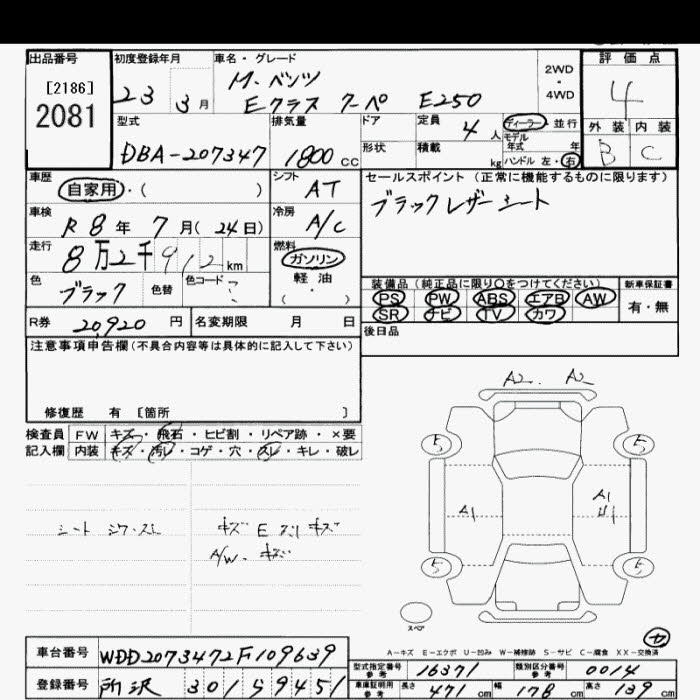 出品番号
[2186]
2081
初度登録年月
23 3月
車名・グレード
M・ベンツ
Eクラス クーペ E250
2WD
・
4WD
評価点
4
外装 内装
B C
型式
DBA-207347
排気量
1800 cc
ドア
形状
定員
4 人
積載
kg
ディーラー・並行
モデル
年式 年
ハンドル 左・右
車歴
自家用・( )
シフト
AT
セールスポイント (正常に機能するものに限ります)
ブラックレザーシート
車検
R8年 7月(24日)
冷房
A/C
走行
8万2千912km
燃料
ガソリン
軽油
( ・ )
色
ブラック
色替
色コード
?
装備品 (純正品に限り○をつけてください)
PS PW ABS エアB AW
SR ナビ TV カワ
新車保証書
有・無
R券 20,920 円
名変期限 月 日
後日品
注意事項申告欄(不具合内容等は具体的に記入して下さい)
修復歴 有 [箇所 ]
検査員
記入欄
FW キズ・飛石・ヒビ割・リペア跡・×要
内装 キズ・汚レ・コゲ・穴・スレ・キレ・破レ
シート シワ・スレ
キズ E スリキズ
A/W・キズ
A2. A2
E E
A1 A1
E E
スペア
A-キズ E-エクボ U-凹み W-補修跡 S-サビ C-腐食 XX-交換済
車台番号 WDD2073472F109639
登録番号 所沢 301 5 9451
型式指定番号
参考
16371
類別区分番号
参考
0014
車庫証明用
参考
長さ 471 cm 幅 178 cm 高さ 139 cm